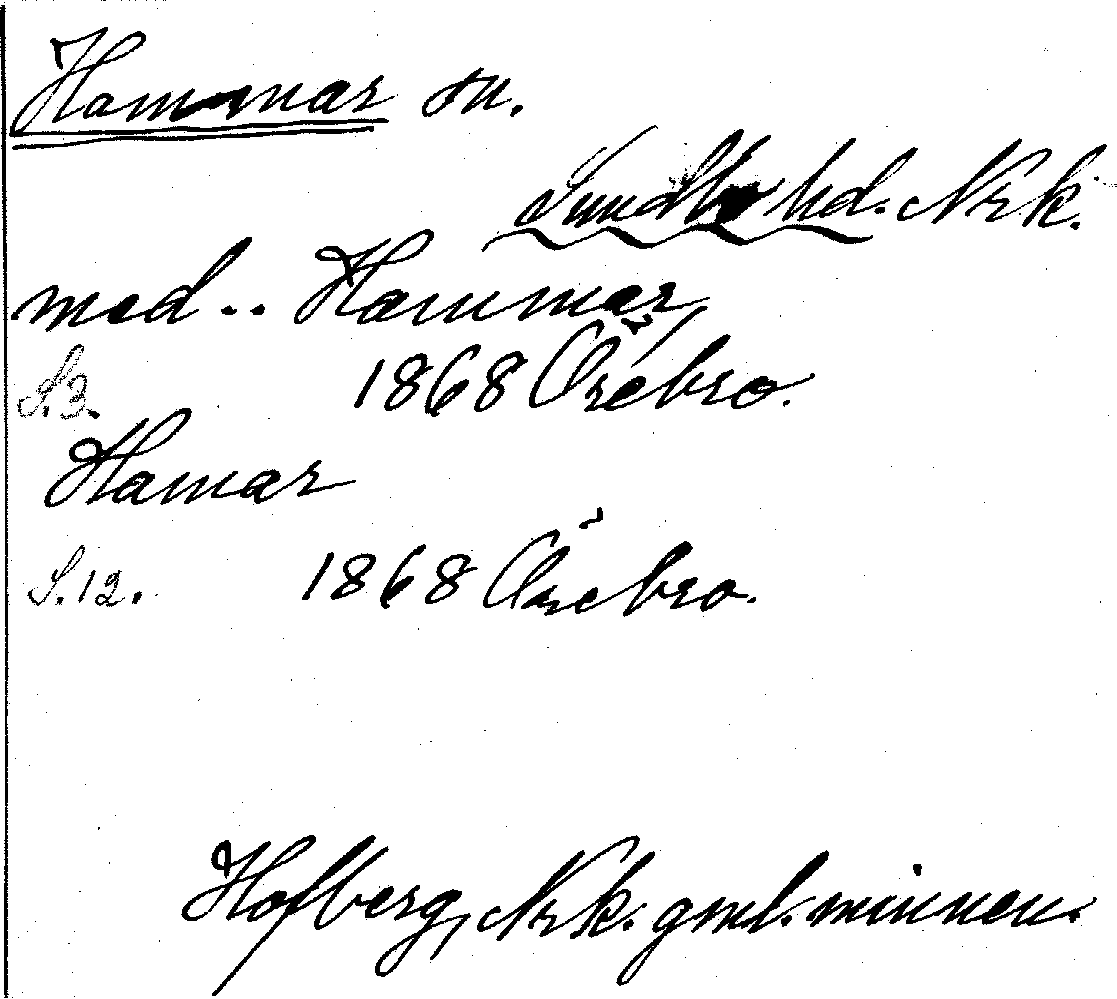 Hammar sn.
Sundbo hd. Nrk.
med.. Hammar,
S.3. 1868 Örebro.
Hamar
S.12. 1868 Örebro.
Hofberg, Nrk. gml. minnen.